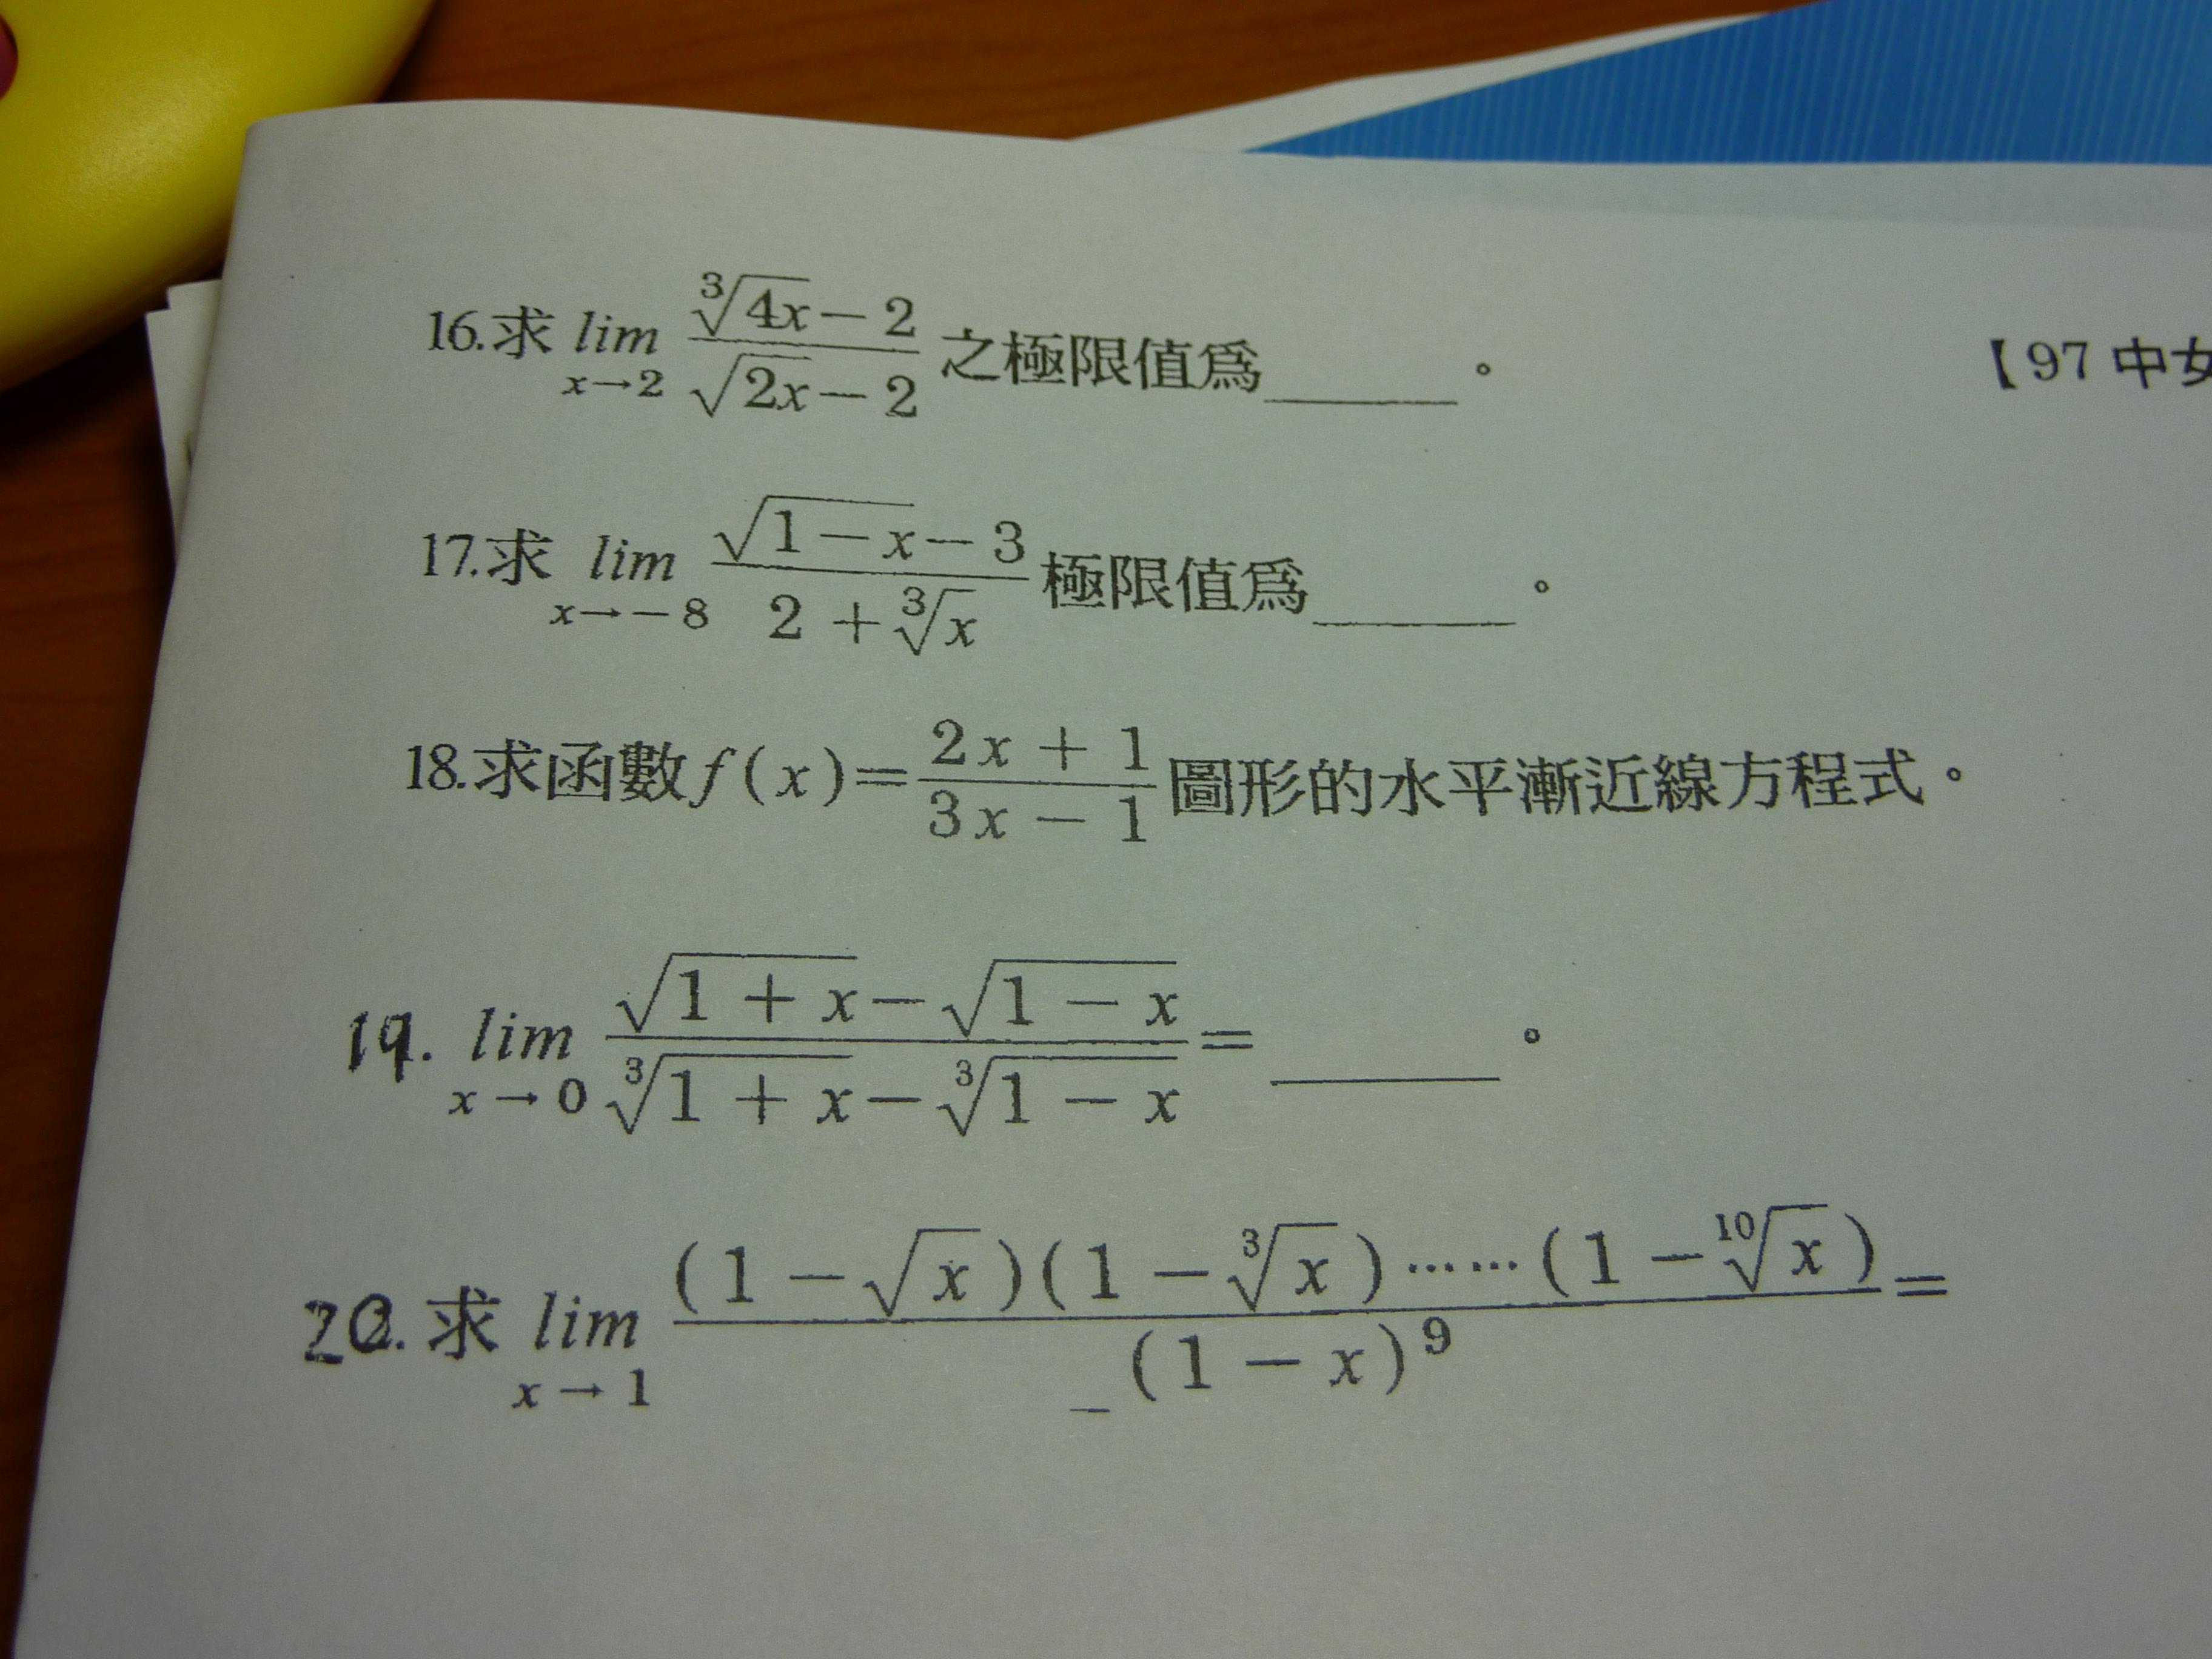 16.求 lim_{x→2} (∛(4x) − 2)/(√(2x) − 2) 之極限值爲______。 【97 中女
17.求 lim_{x→−8} (√(1−x) − 3)/(2 + ∛x) 極限值爲______。
18.求函數f(x)=(2x + 1)/(3x − 1)圖形的水平漸近線方程式。
19. lim_{x→0} (√(1 + x) − √(1 − x))/(∛(1 + x) − ∛(1 − x)) = ______。
20.求 lim_{x→1} ((1 − √x)(1 − ∛x)……(1 − ¹⁰√x))/(1 − x)⁹ =